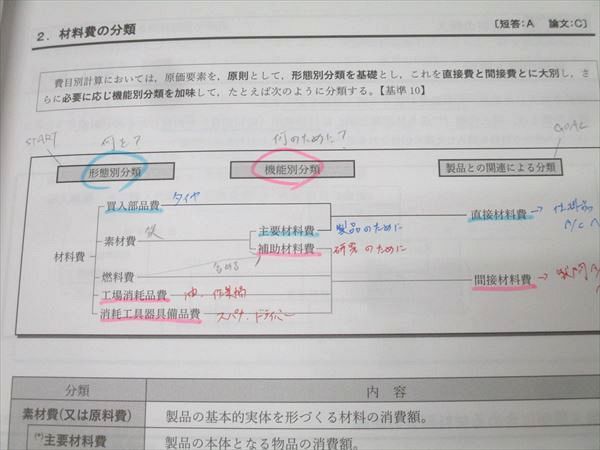 2．材料費の分類
〔短答：A 論文：C〕
費目別計算においては，原価要素を，原則として，形態別分類を基礎とし，これを直接費と間接費とに大別し，さ
らに必要に応じ機能別分類を加味して，たとえば次のように分類する。【基準10】
START 何を？ 何のために？ GOAL
形態別分類 機能別分類 製品との関連による分類
買入部品費 タイヤ
主要材料費 製品のために
直接材料費
素材費
補助材料費 研究のために
材料費
燃料費
間接材料費
工場消耗品費
消耗工具器具備品費 スパナ、ドライバー
分類 内容
素材費(又は原料費) 製品の基本的実体を形づくる材料の消費額。
(*)主要材料費 製品の本体となる物品の消費額。